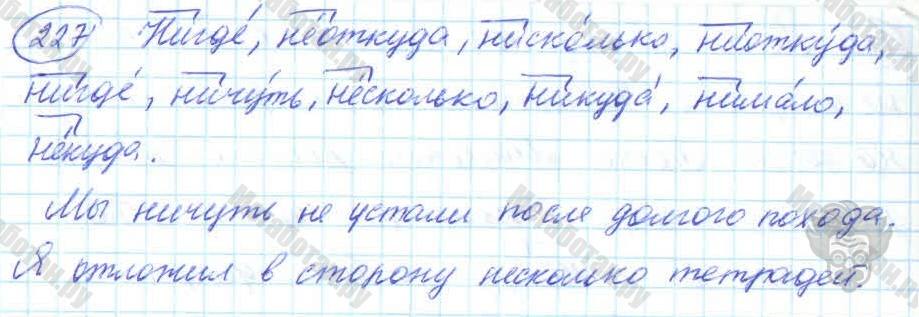 227 Нигде́, не́откуда, ниско́лько, ниотку́да,
нигде́, ничу́ть, не́сколько, никуда́, нима́ло,
не́куда.
Мы ничуть не устали после долгого похода.
Я отложил в сторону несколько тетрадей.